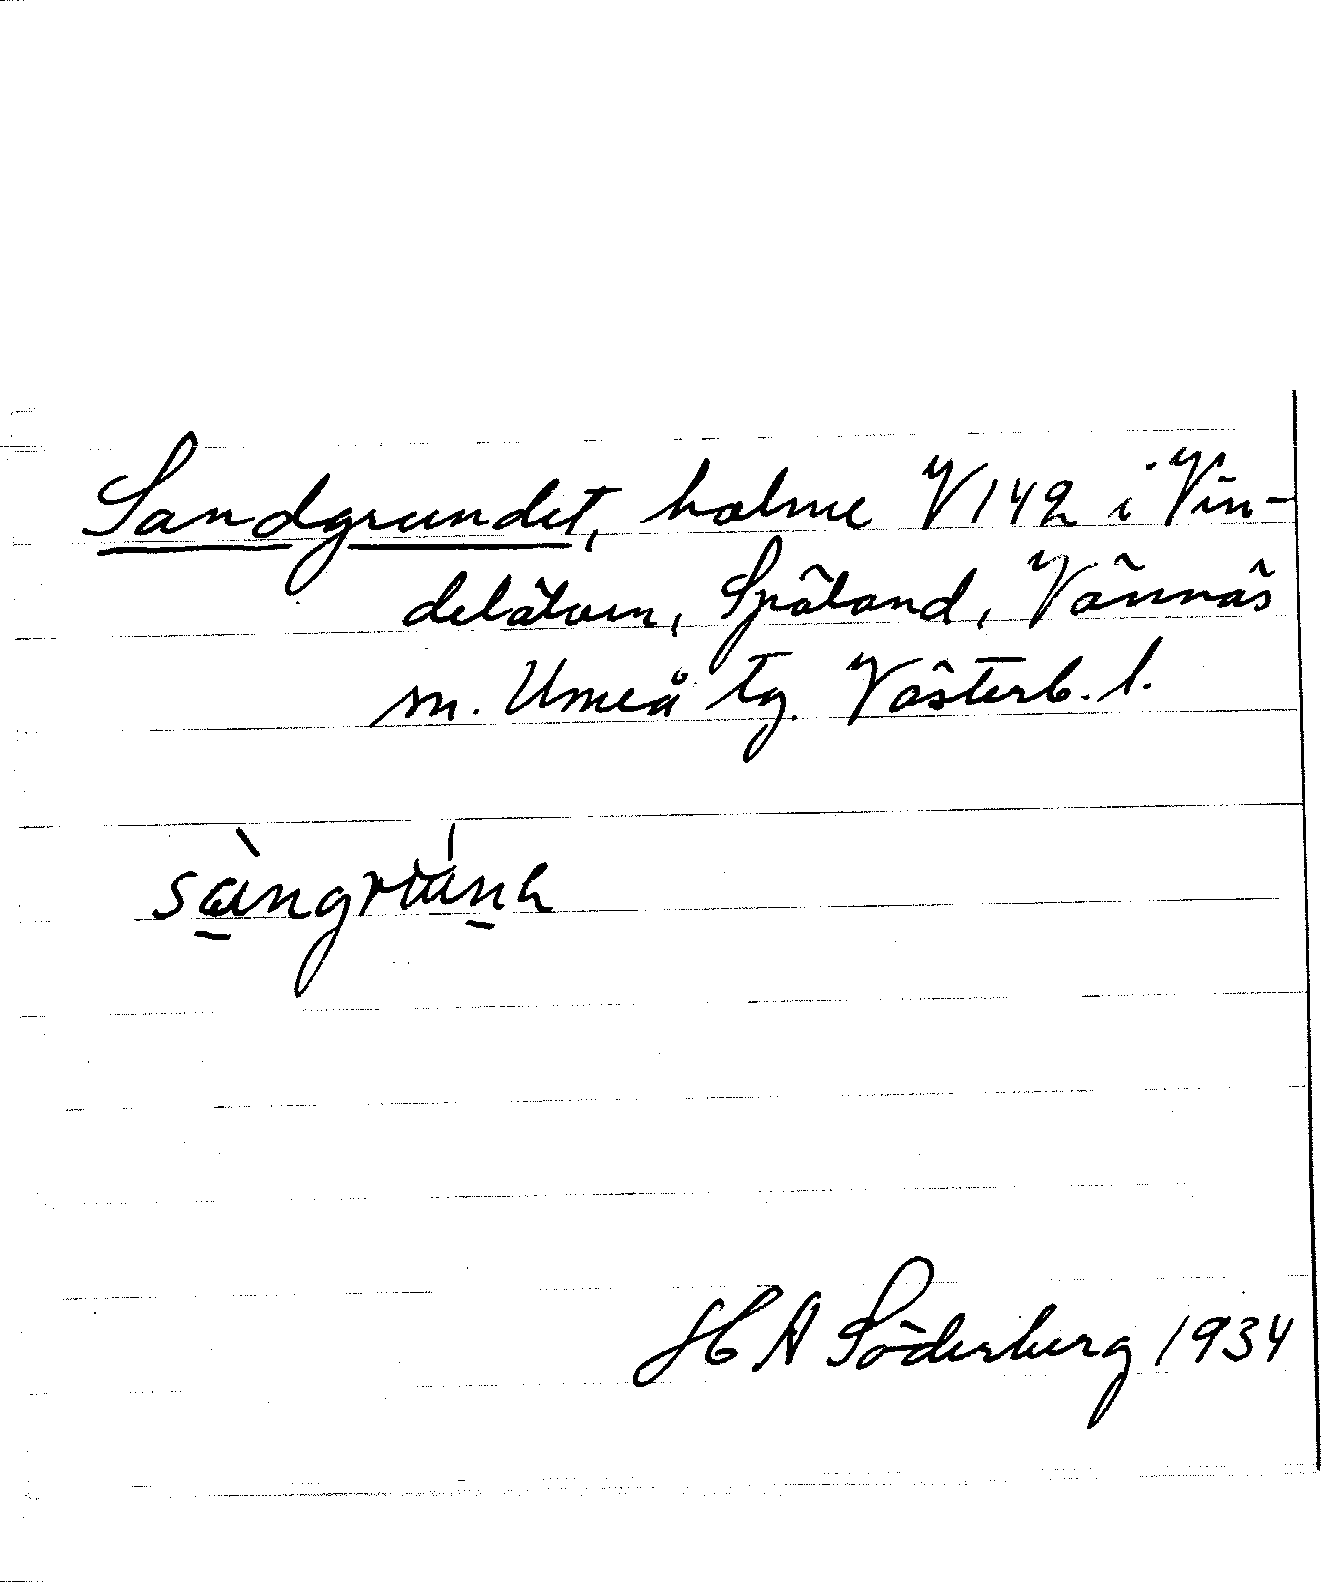 Sandgrundet, holme V142 i Vin-
delälven, Spöland, Vännäs
sn. Umeå tg. Västerb. l.
HA Söderberg 1934